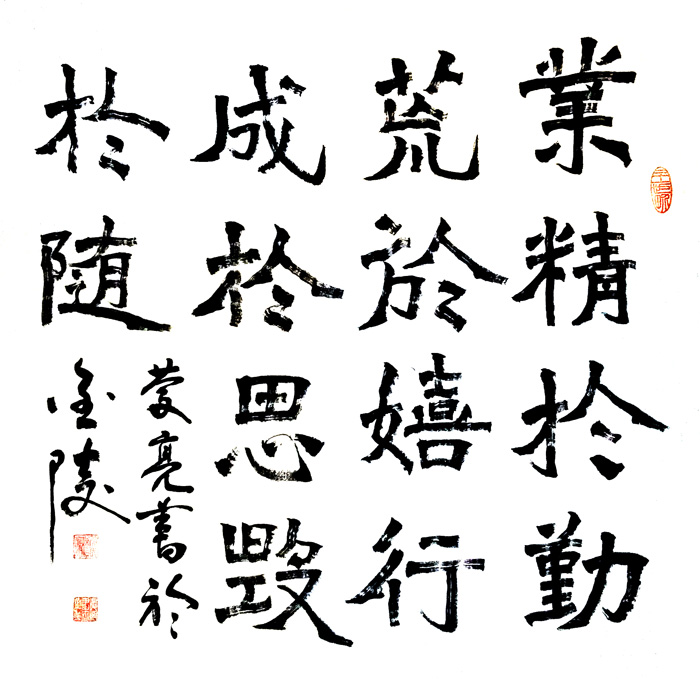 業精於勤
荒於嬉行
成於思毀
於随
亮書於
金陵